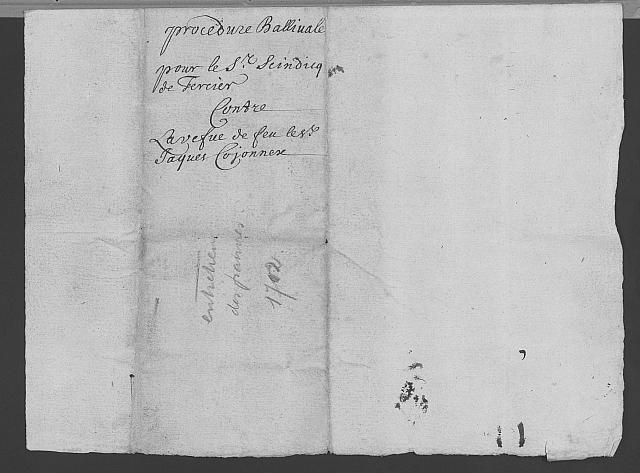 procedure Ballivale
pour le Sr. Scindicq
de Fercier
Contre
La vefue de feu le Sr.
Jaques Cojonnex
entretien
des pauvres
1702